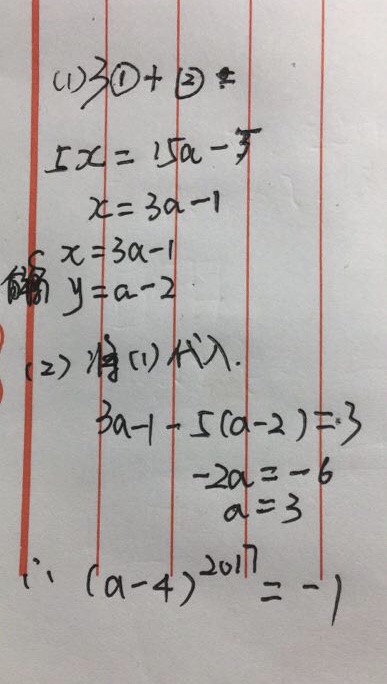 (1) 3①+②=
5x=15a-5
x=3a-1
x=3a-1
解 y=a-2
(2) 将(1)代入.
3a-1-5(a-2)=3
-2a=-6
a=3
∴ (a-4)²⁰¹⁷=-1